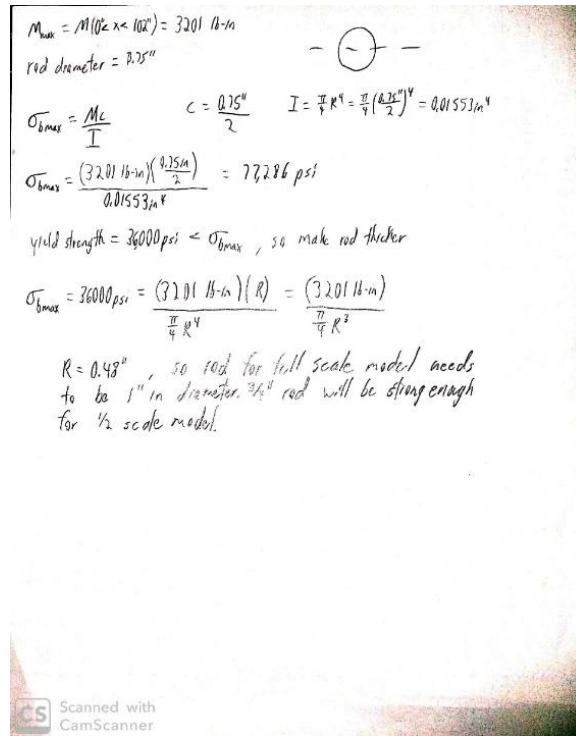 M_max = M(0"< x < 102") = 3201 lb-in
rod diameter = 0.75"
σ_bmax = Mc/I
c = 0.75"/2
I = π/4 R⁴ = π/4 (0.75"/2)⁴ = 0.01553in⁴
σ_bmax = (3201 lb-in)(0.75in/2) / 0.01553in⁴ = 77,286 psi
yield strength = 36,000psi < σ_bmax, so make rod thicker
σ_bmax = 36000psi = (3201 lb-in)(R) / π/4 R⁴ = (3201 lb-in) / π/4 R³
R = 0.48", so rod for full scale model needs
to be 1" in diameter. 3/4" rod will be strong enough
for 1/2 scale model.
CS Scanned with
CamScanner